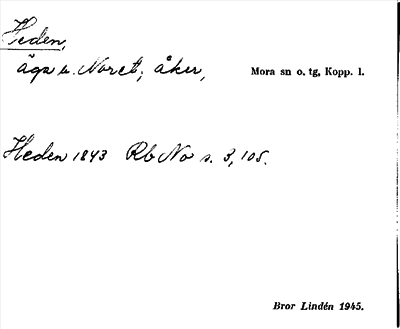 Heden,
äga u. Noret; åker,
Mora sn o. tg, Kopp. l.
Heden 1843 Rb No s. 3, 105.
Bror Lindén 1945.